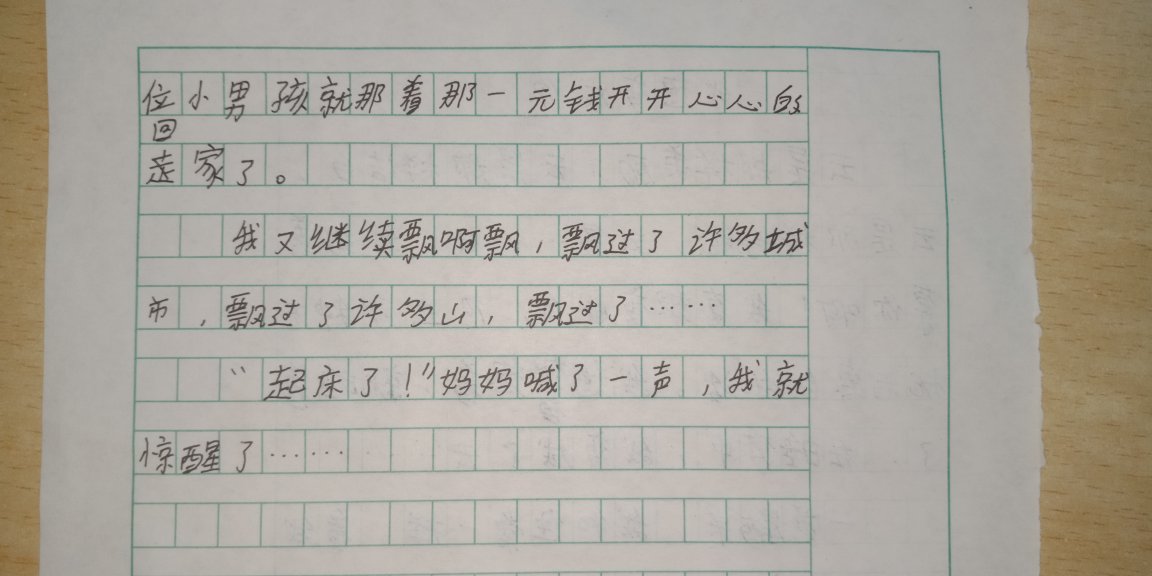 位小男孩就那着那一元钱开开心心的
回
走家了。
我又继续飘啊飘，飘过了许多城
市，飘过了许多山，飘过了……
“起床了！”妈妈喊了一声，我就
惊醒了……